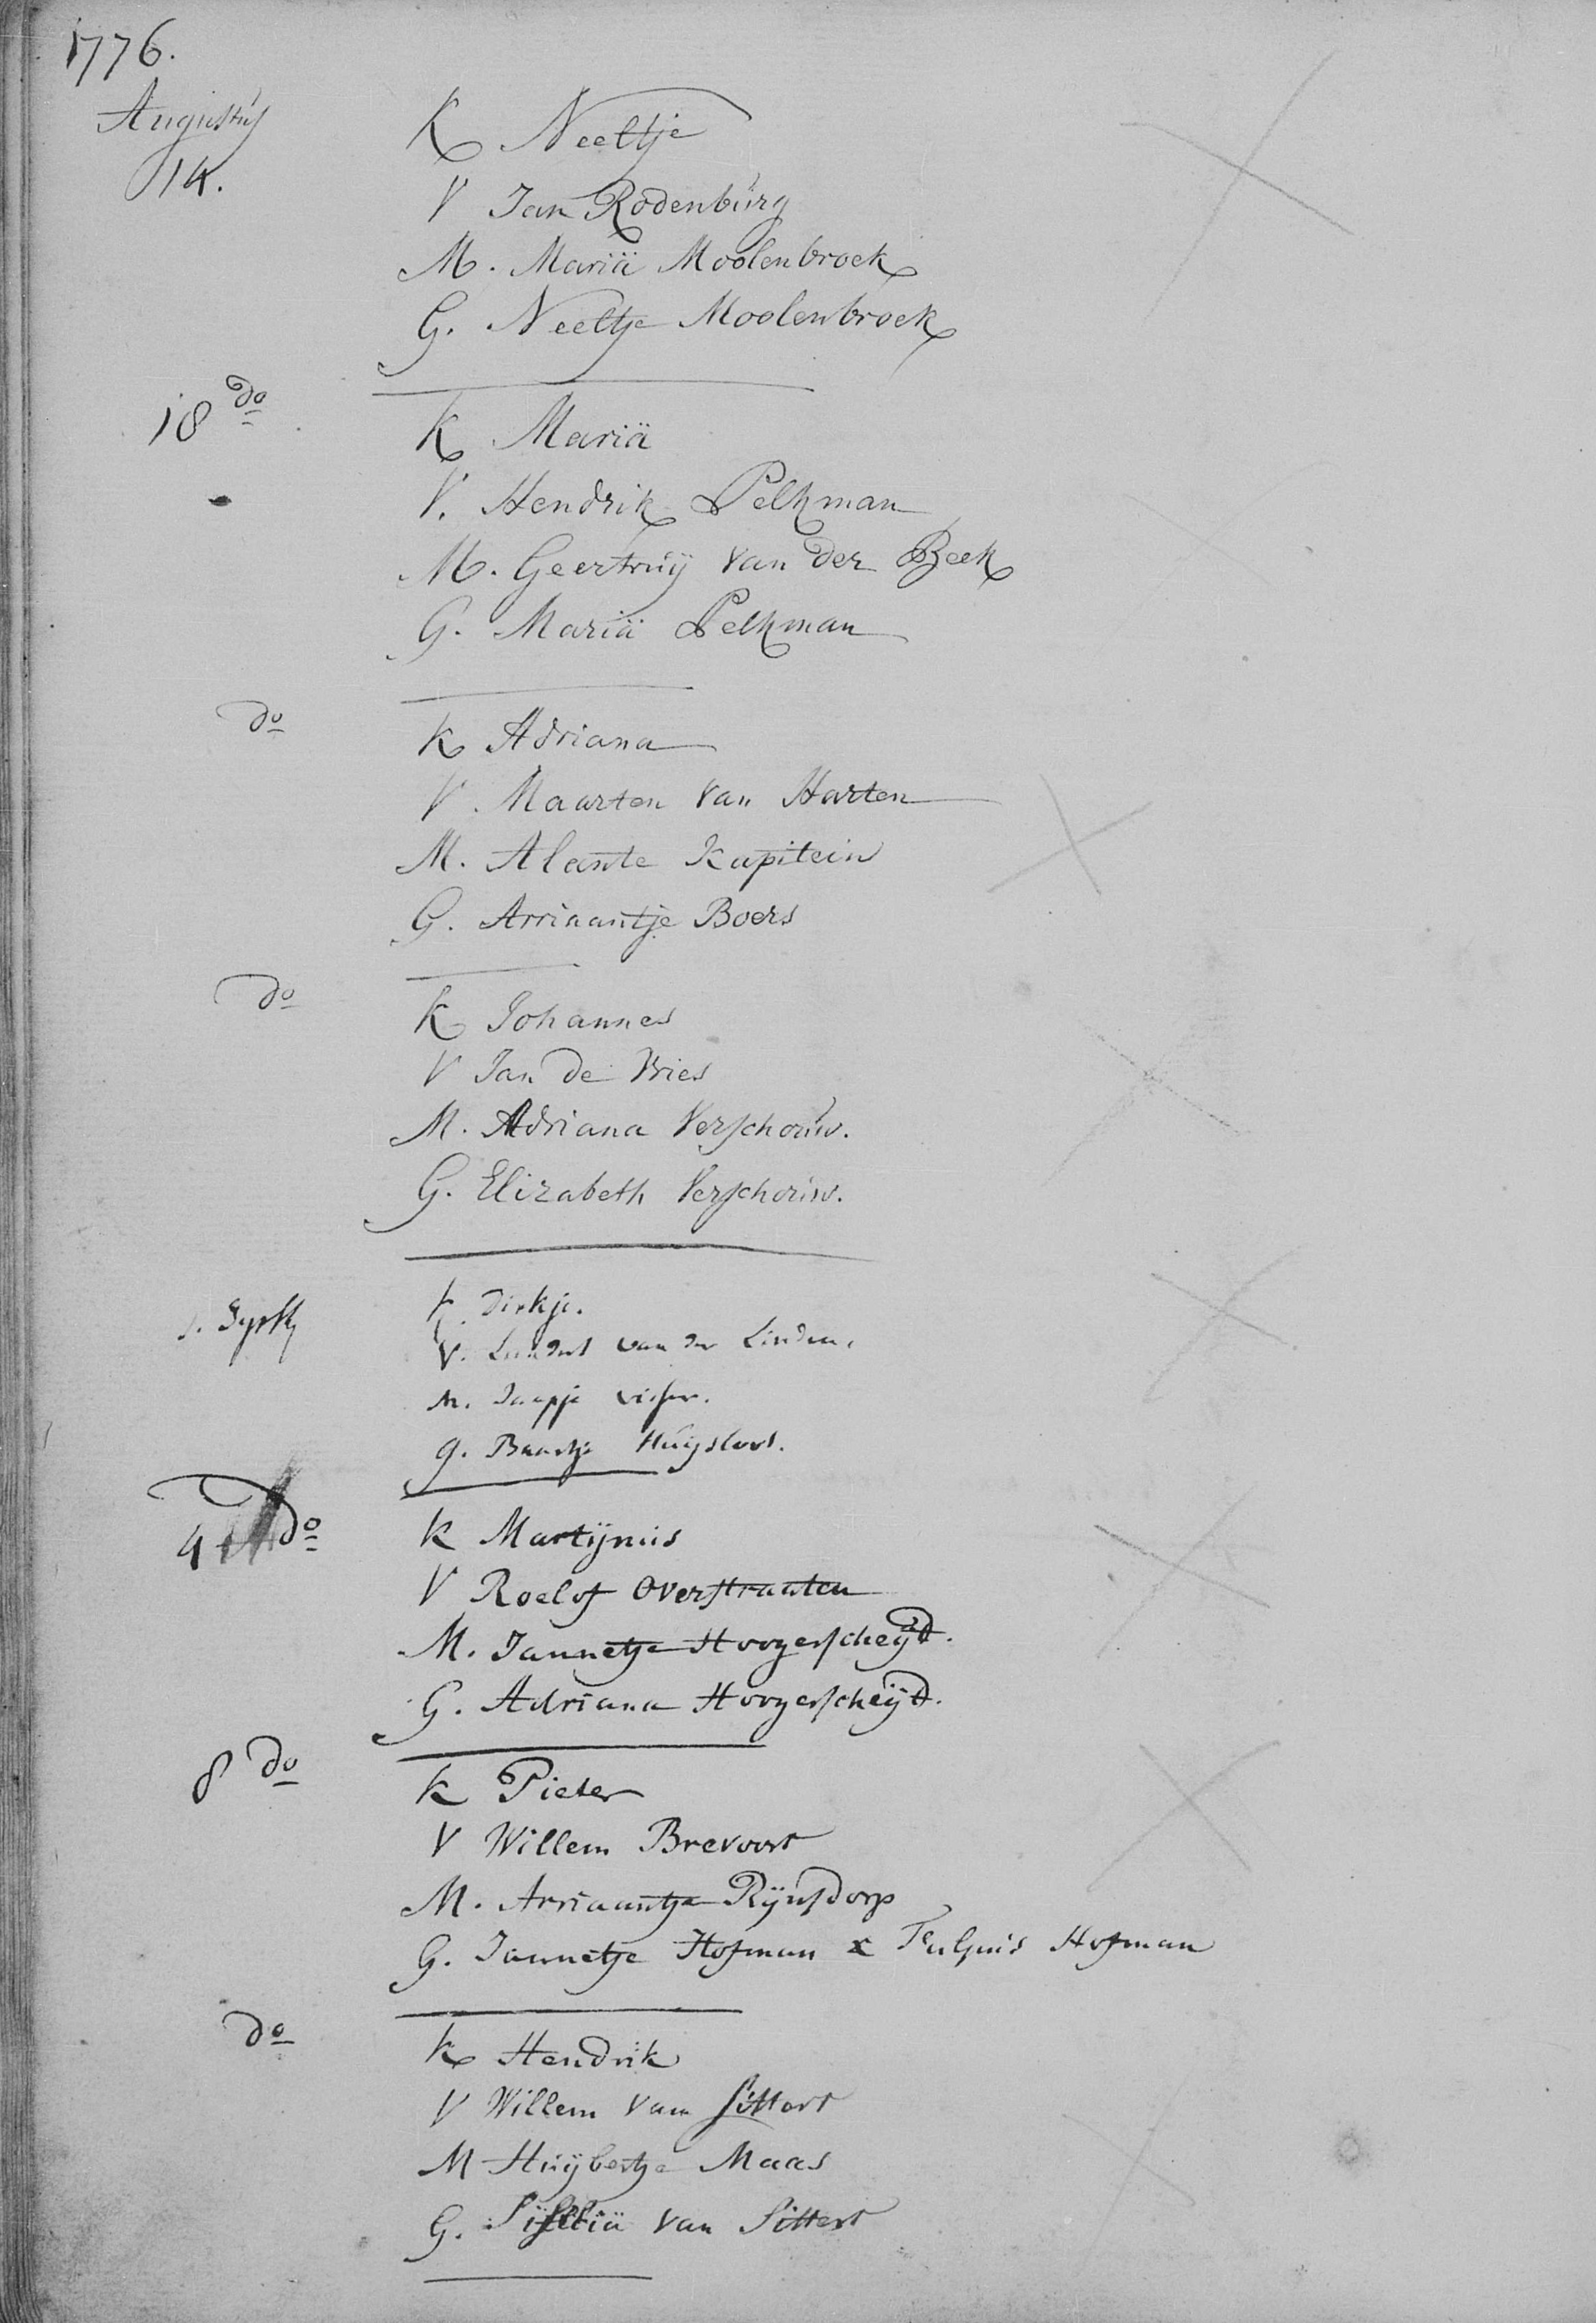 1776.
Augustus
14.
K Neeltje
V Jan Rodenburg
M. Mariä Moolenbroek
G. Neeltje Moolenbroek
18 do
K Mariä
V. Hendrik Pelkman
M. Geertruÿ van der Beek
G. Mariä Pelkman
do
K Adriana
V. Maarten van Harten
M. Alante Kapitein
G. Arriaantje Boers
do
K Johannes
V Jan de Vries
M. Adriana Verschouw.
G. Elizabeth Verschouw.
K Dirkje.
V. Leendert van der Linden.
M. Jaapje Visser.
G. Baartje
4 do
K Martÿnus
V Roelof Overstraaten
M. Jannetje Hoogerscheÿd.
G. Adriana Hoogerscheÿd.
8 do
K Pieter
V Willem Brevoort
M. Arriaantje Rÿnsdorp
G. Jannetje Hofman & Hofman
do
K Hendrik
V Willem van Sittert
M Huÿbertje Maas
G. van Sittert